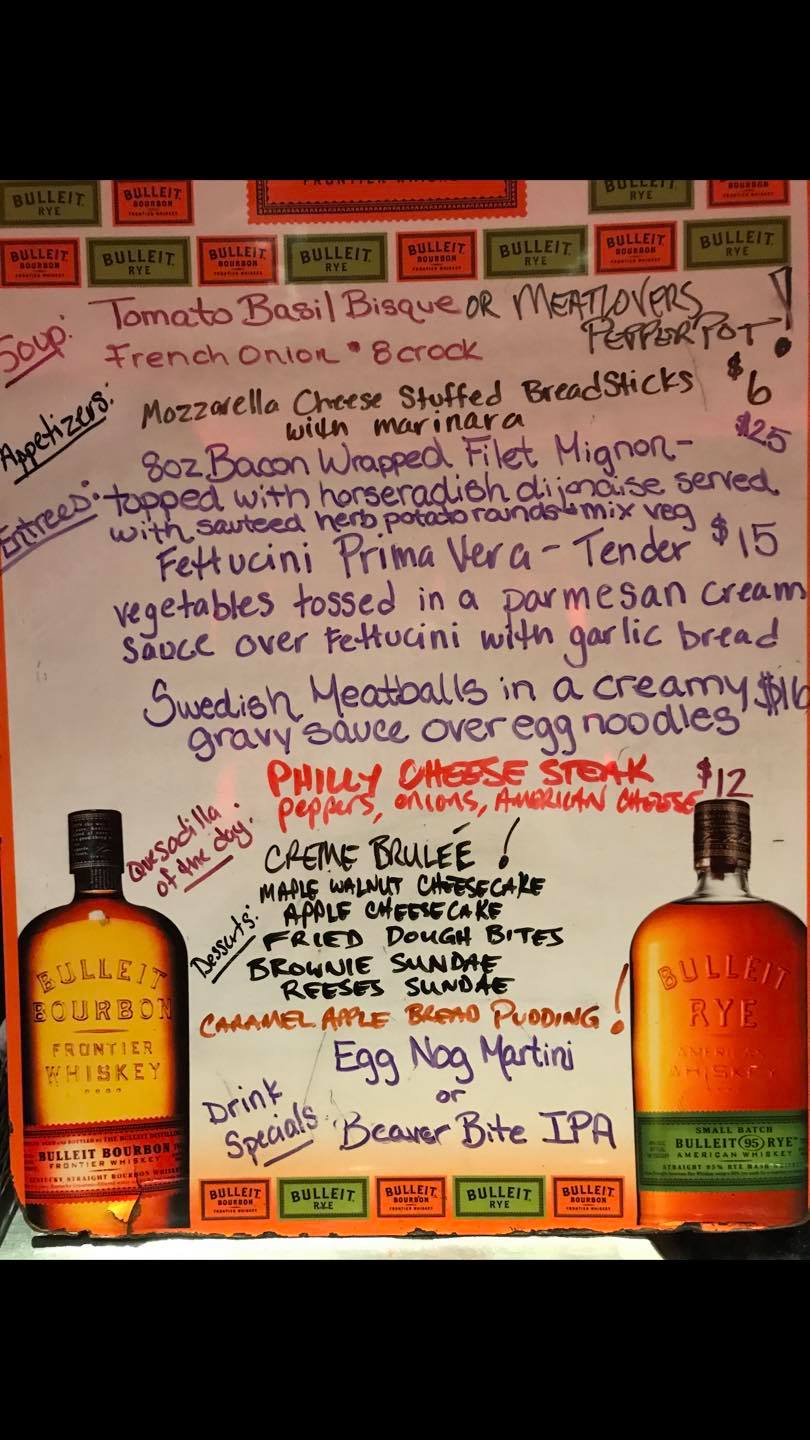 FRONTIER WHISKEY
BULLEIT RYE BULLEIT BOURBON FRONTIER WHISKEY BULLEIT RYE BOURBON FRONTIER WHISKEY
BULLEIT BOURBON FRONTIER WHISKEY BULLEIT RYE BULLEIT BOURBON FRONTIER WHISKEY BULLEIT RYE BULLEIT BOURBON FRONTIER WHISKEY BULLEIT RYE BULLEIT BOURBON FRONTIER WHISKEY BULLEIT RYE
Soup: Tomato Basil Bisque OR MEATLOVERS
PEPPER POT!
French Onion • 8 crock
Appetizers: Mozzarella Cheese Stuffed BreadSticks $6
with marinara
Entrees: 8oz Bacon Wrapped Filet Mignon- $25
topped with horseradish dijonaise served
with sauteed herb potato rounds + mix veg
Fettucini Prima Vera - Tender $15
vegetables tossed in a parmesan cream
sauce over fettucini with garlic bread
Swedish Meatballs in a creamy $$16
gravy sauce over egg noodles
Quesadilla
of the day:
PHILLY CHEESE STEAK $12
peppers, onions, AMERICAN CHEESE
Desserts: CREME BRULEÉ!
MAPLE WALNUT CHEESECAKE
APPLE CHEESECAKE
FRIED DOUGH BITES
BROWNIE SUNDAE
REESES SUNDAE
CARAMEL APPLE BREAD PUDDING!
Drink
Specials:
Egg Nog Martini
or
Beaver Bite IPA
BULLEIT
BOURBON
FRONTIER
WHISKEY
BULLEIT BOURBON
FRONTIER WHISKEY
KENTUCKY STRAIGHT BOURBON WHISKEY
BULLEIT
RYE
AMERICAN
WHISKEY
SMALL BATCH
BULLEIT 95 RYE
AMERICAN WHISKEY
STRAIGHT 95% RYE MASH
BULLEIT BOURBON FRONTIER WHISKEY BULLEIT RYE BULLEIT BOURBON FRONTIER WHISKEY BULLEIT RYE BULLEIT BOURBON FRONTIER WHISKEY